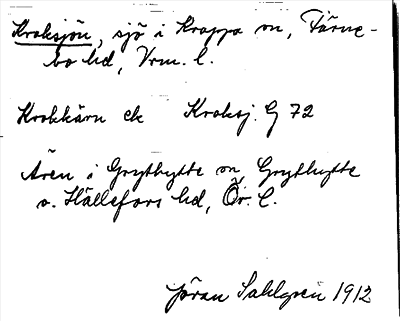 Kroksjön, sjö i Kroppa sn, Färne-
bo hd, Vrm. l.
Krokkärn ek Kroksj. G 72
Ären i Grythytte sn, Grythytte
o. Hällefors hd, Ör. l.
Jöran Sahlgren 1912